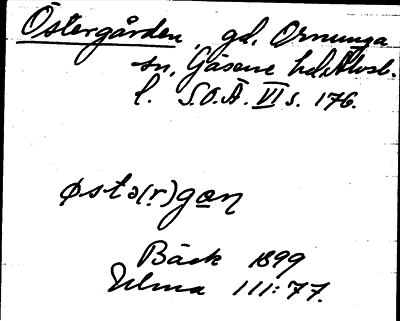 Östergården, gd, Ornunga
sn, Gäsene hd, Älvsb.
l. S.O.Ä. VI s. 176.
østə(r)gan
Bäck 1899
Ulma 111:77.